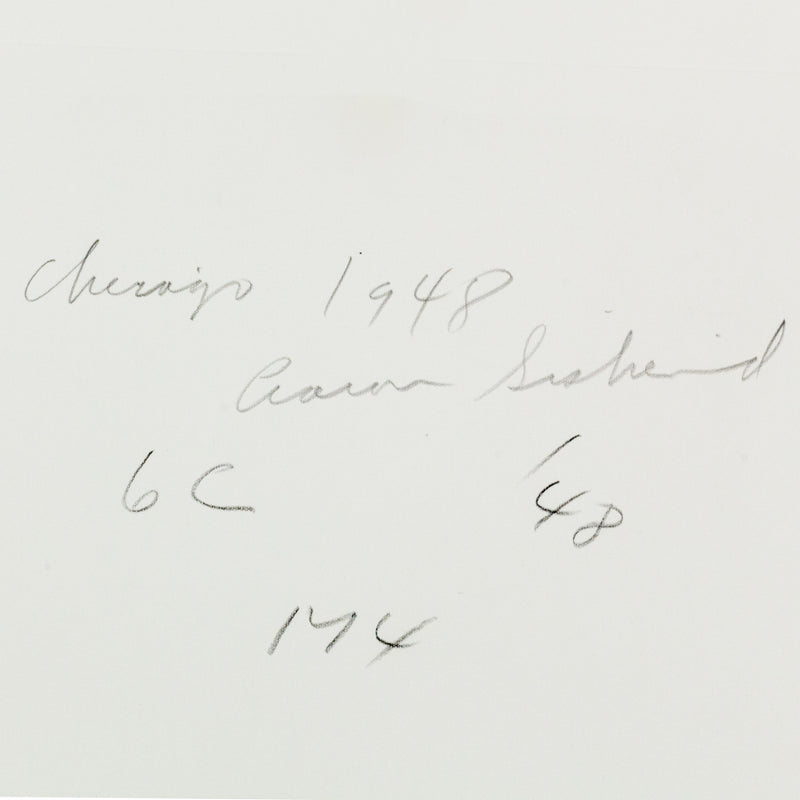 Chicago 1948
Aaron Siskind
6 C '48
174